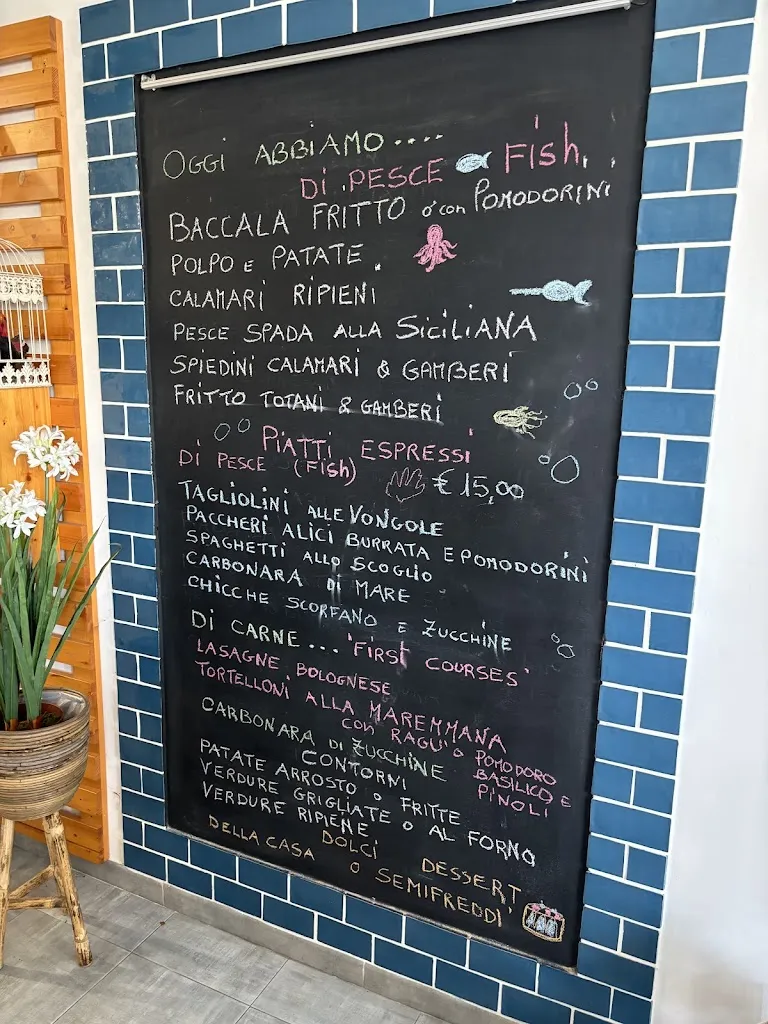 OGGI ABBIAMO....
DI PESCE Fish
BACCALA FRITTO o' con POMODORINI
POLPO E PATATE
CALAMARI RIPIENI
PESCE SPADA ALLA SICILIANA
SPIEDINI CALAMARI & GAMBERI
FRITTO TOTANI & GAMBERI
PIATTI ESPRESSI
DI PESCE (FISH) € 15,00
TAGLIOLINI ALLE VONGOLE
PACCHERI ALICI BURRATA E POMODORINI
SPAGHETTI ALLO SCOGLIO
CARBONARA DI MARE
CHICCHE SCORFANO E ZUCCHINE
DI CARNE... 'FIRST COURSES'
LASAGNE BOLOGNESE
TORTELLONI ALLA MAREMMANA
CON RAGU' O POMODORO
BASILICO E
PINOLI
CARBONARA DI ZUCCHINE
CONTORNI
PATATE ARROSTO O FRITTE
VERDURE GRIGLIATE O AL FORNO
VERDURE RIPIENE
DOLCI DESSERT
DELLA CASA O SEMIFREDDI'